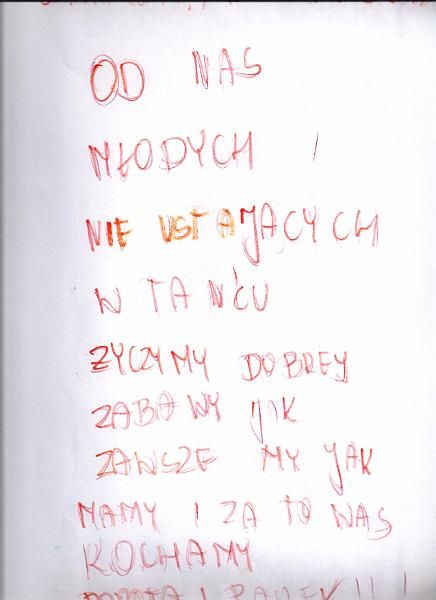 OD NAS
MŁODYCH I
NIE USTAJĄCYCH
W TAŃCU
ZYCZYMY DOBREY
ZABAWY JAK
ZAWSZE MY JAK
MAMY I ZA TO NAS
KOCHAMY
DOROTA I PAREK !! !